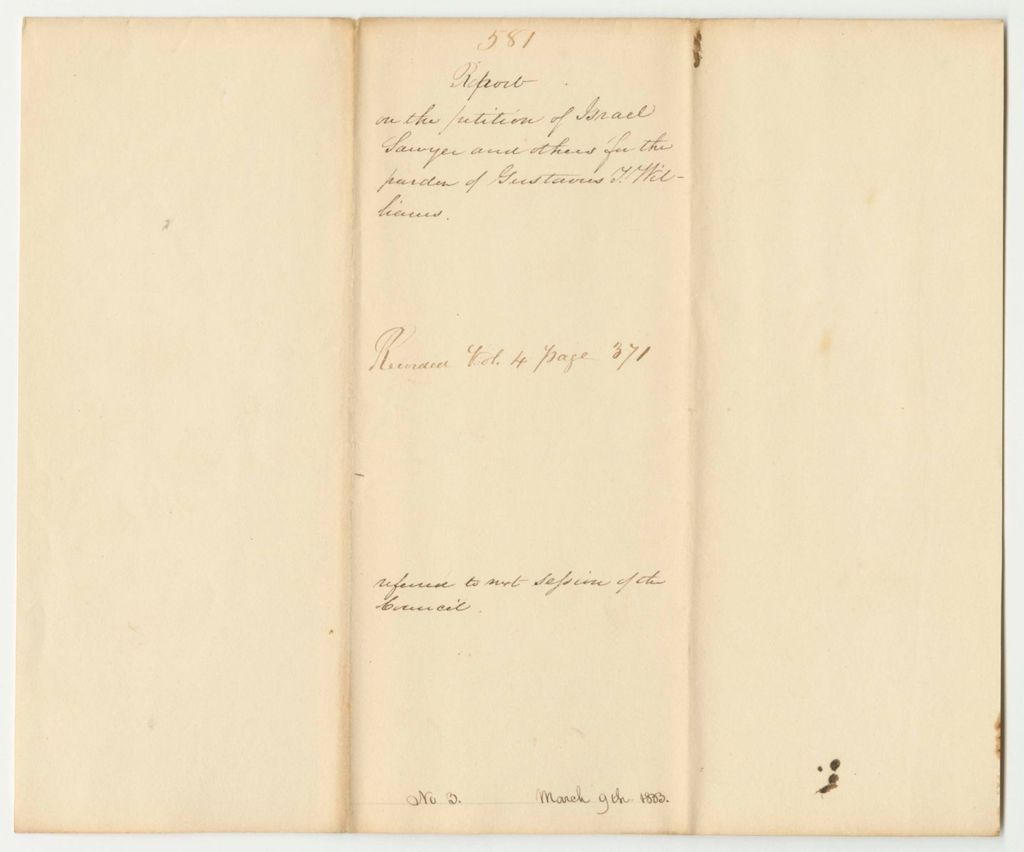 581
Report
on the petition of Israel
Sawyer and others for the
pardon of Gustavus T. Wil-
liams.
Recorded Vol. 4 page 371
referred to next session of the
Council.
No 3. March 9th 1833.